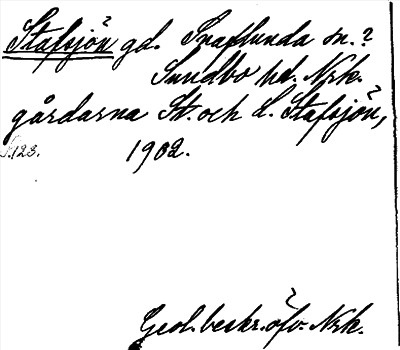 Stafsjön gd. Snaflunda sn.?
Sundbo hd. Nrk.
gårdarna St. och L. Stafsjön,
S.123. 1902.
Geol. beskr. öfv. Nrk.